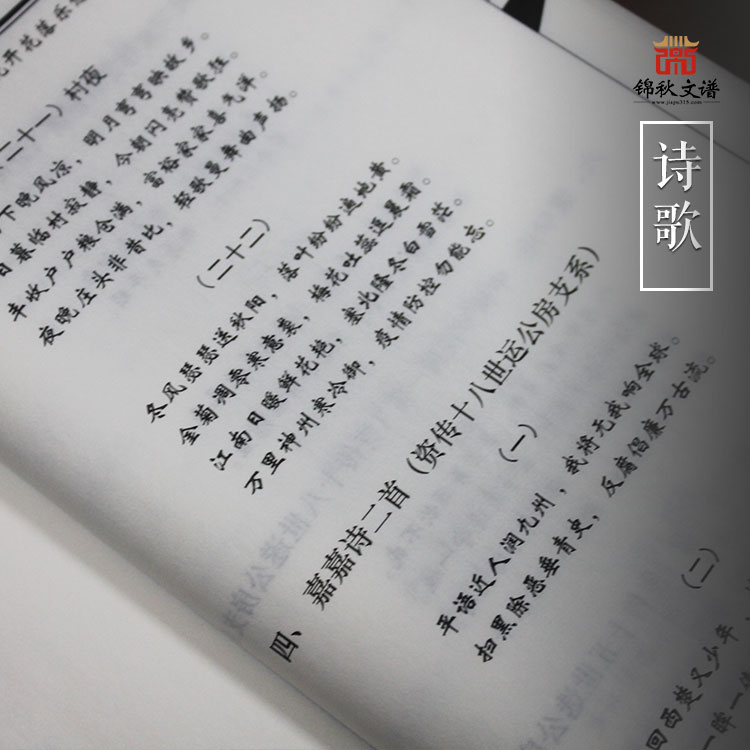 锦秋文谱
www.jiapu315.com
诗歌
开花落乐
（二十一）村夜
下晚风凉，明月弯弯映故乡。
日暮临村寂静，今朝闪亮赞歌狂。
丰收户户粮仓满，富裕家家喜气洋。
夜晚庄头非昔比，轻歌曼舞曲声扬。
（二十二）
冬风瑟瑟送秋阳，落叶纷纷遍地黄。
金菊凋零寒意，梅花吐蕊逗晨霜。
江南日暖鲜花艳，塞北隆冬白雪茫。
万里神州寒冷御，疫情防控勿能忘。
四、嘉嘉诗二首（资传十八世运公房支系）
（一）
平语近人润九州，我将无我响全球。
扫黑除恶要青史，反腐倡廉万古流。
（二）
回西楚又少年，
一晖一